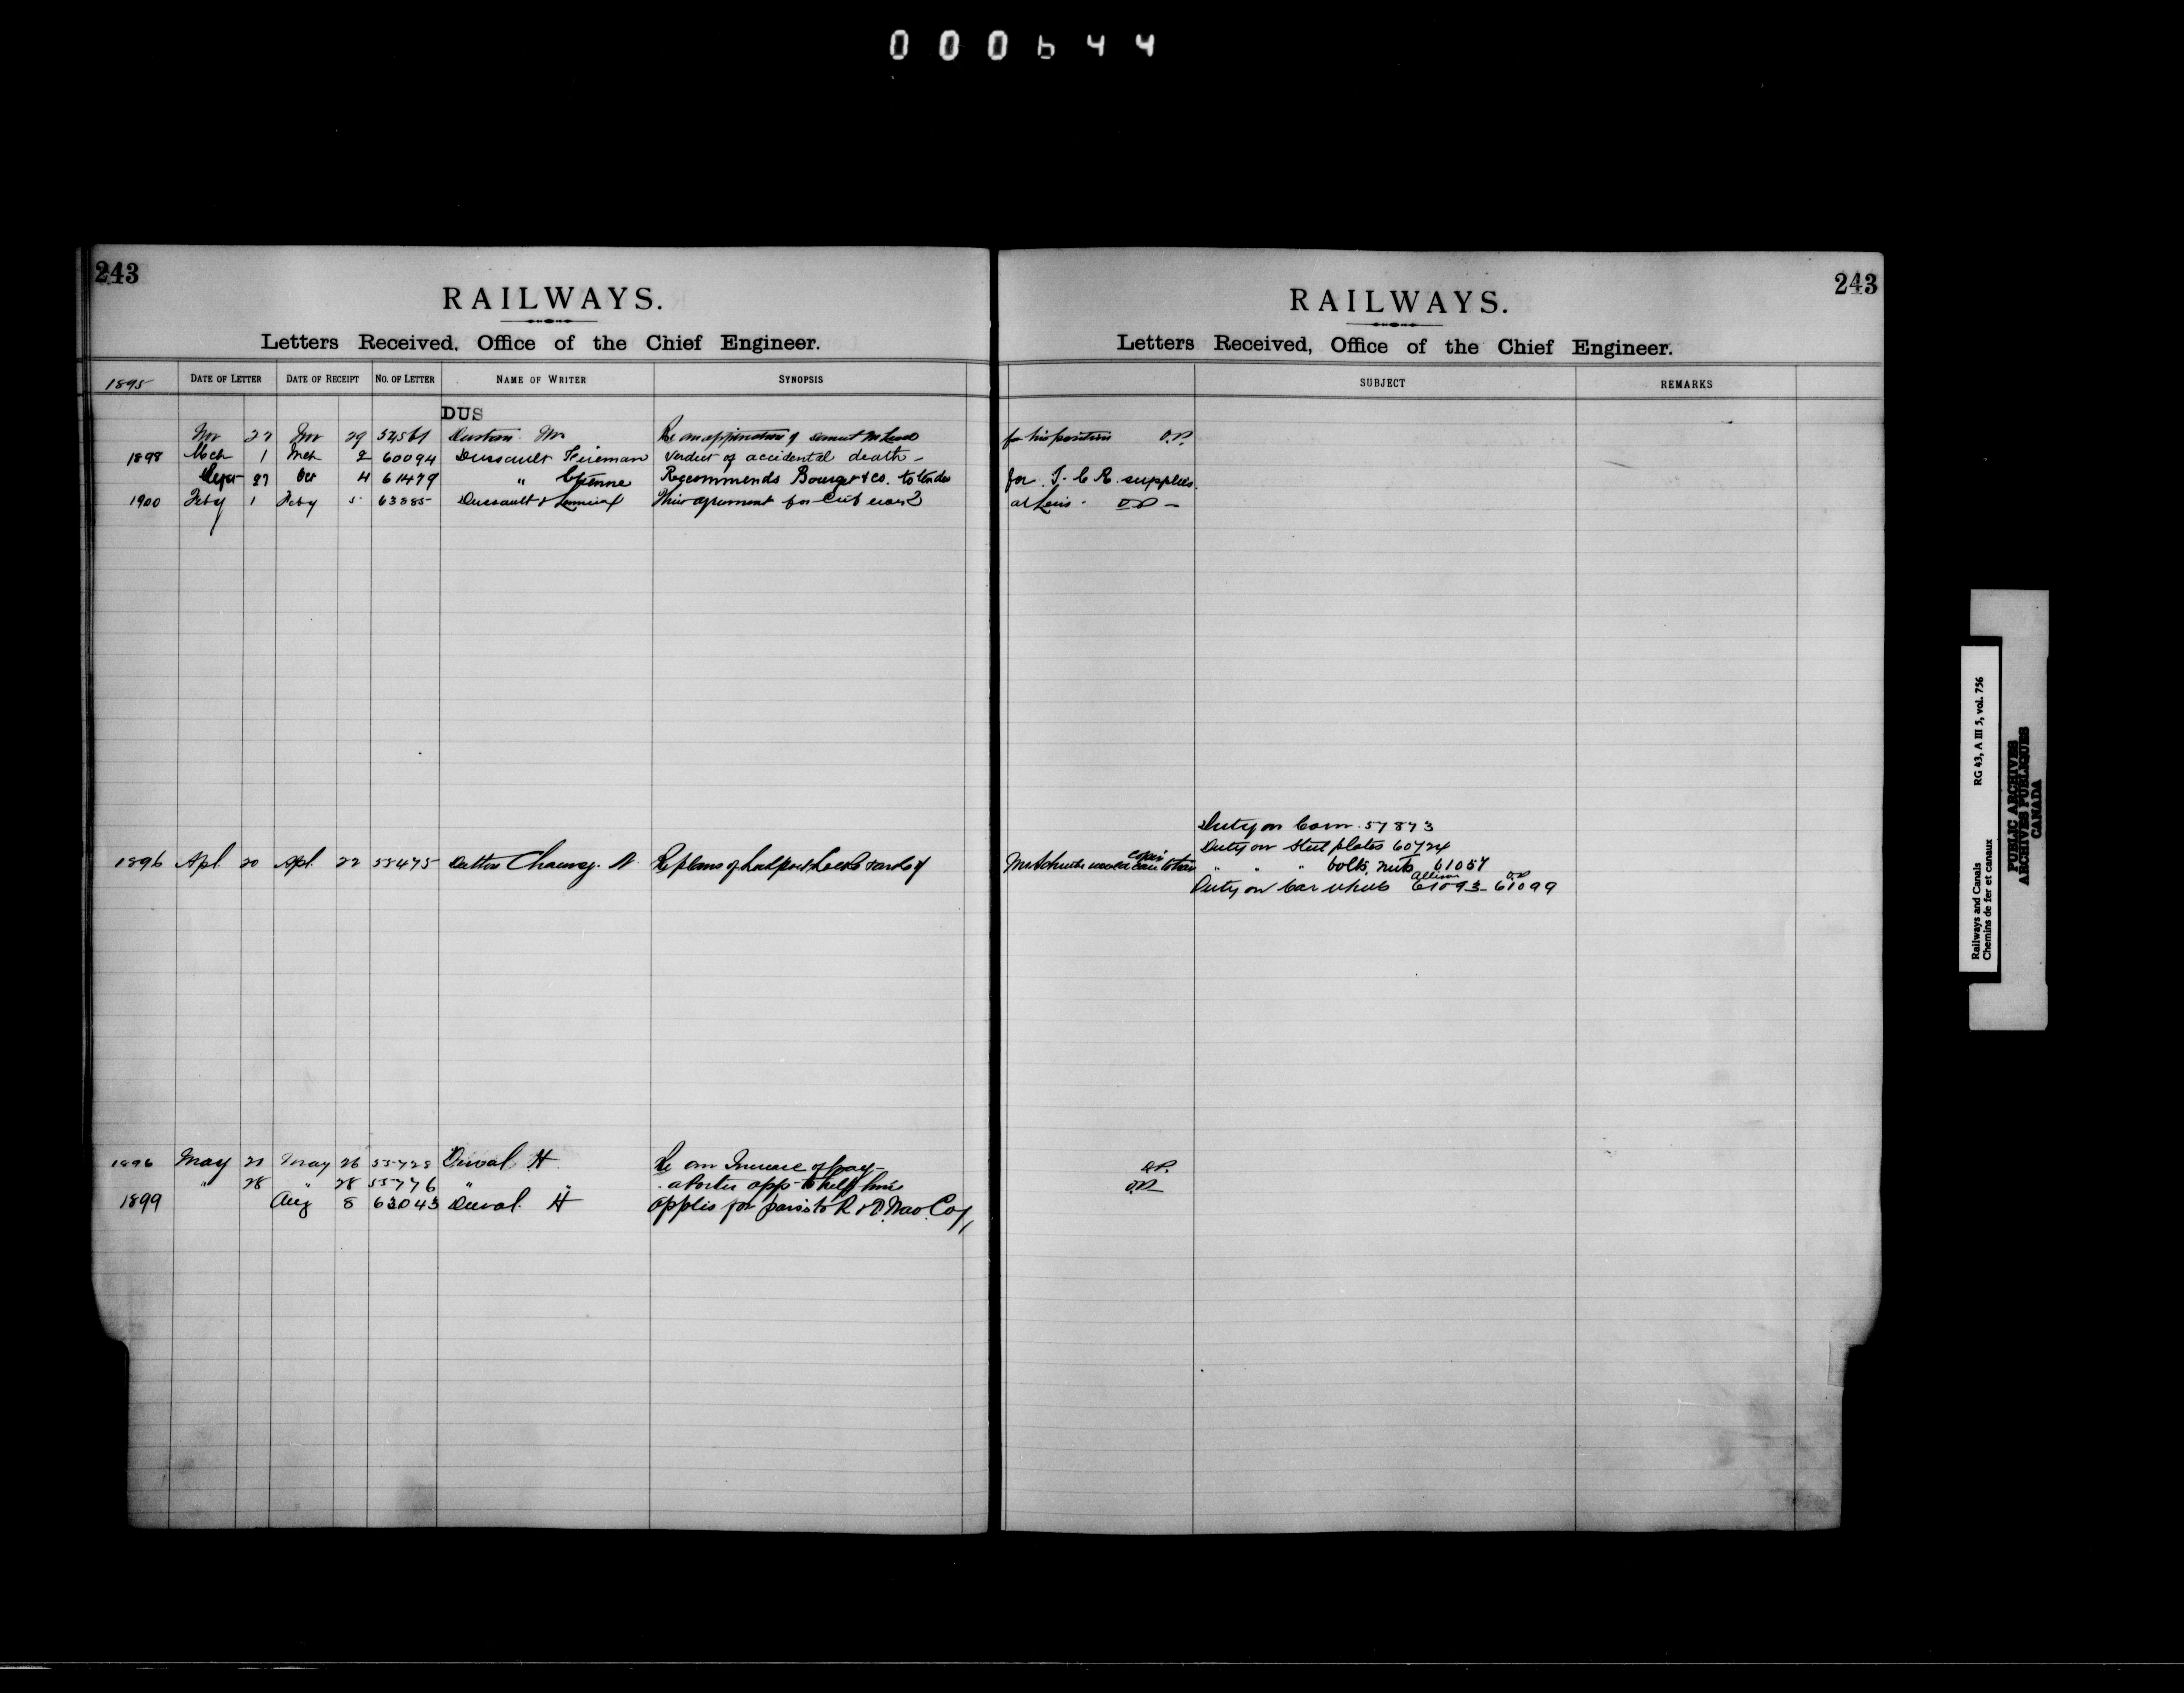 000644
243
RAILWAYS.
Letters Received, Office of the Chief Engineer.
1895 DATE OF LETTER DATE OF RECEIPT NO. OF LETTER NAME OF WRITER SYNOPSIS
DUS
Nov 27 Nov 29 54561 Re an application of
1898 Mch 1 Mch 2 60094 Dussault Fireman Verdict of accidental death -
Sept 27 Oct 4 61479 " Etienne Recommends Bourget & Co. to tender
1900 Feby 1 Feby 5 63885 Dussault & Lemieux for
1896 Apl 20 Apl. 22 55475 Dutton Chauncy. N. Re plans of Lockport Locks &
1896 May 21 May 26 55728 Duval H Re an Increase of pay -
" 28 " 28 55776 " " to help him
1899 Aug 8 63043 Duval. H applis for pass to R & O. Nav. Coy
243
RAILWAYS.
Letters Received, Office of the Chief Engineer.
SUBJECT REMARKS
for his position O.P.
for I. C. R. supplies.
at Levis - O.P. -
Duty on Corn. 57873
Duty on Steel plates 60724
" " bolts, nuts 61057
Duty on Car wheels Allison 61093 - O.P. 61099
O.P.
O.P.
Railways and Canals RG 43, A III 5, vol. 756
Chemins de fer et canaux
PUBLIC ARCHIVES
ARCHIVES PUBLIQUES
CANADA